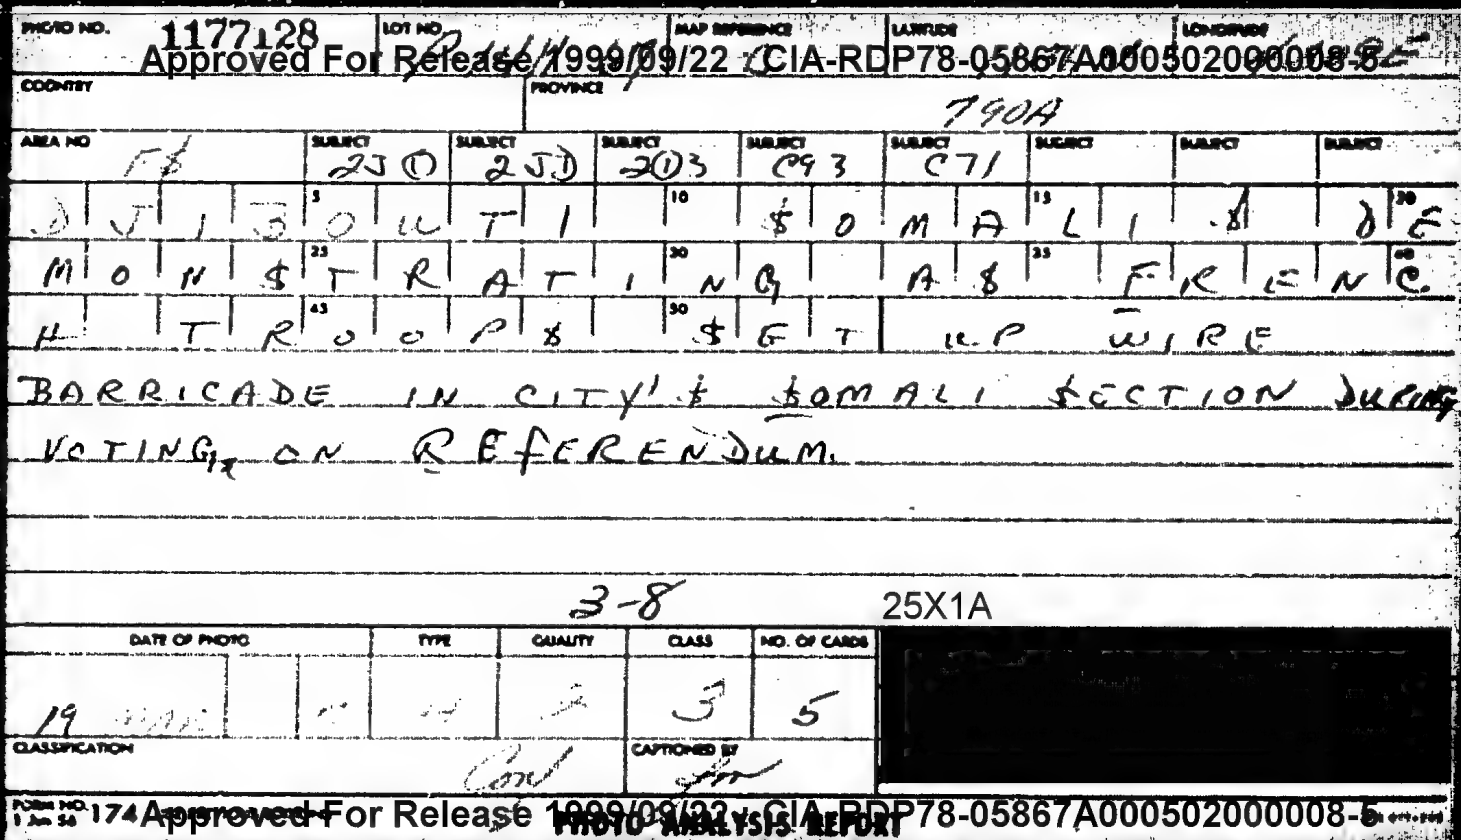 PHOTO NO. 1177128 LOT NO. MAP REFERENCE LATITUDE LONGITUDE
Approved For Release 1999/09/22 : CIA-RDP78-05867A000502000008-5
COUNTRY PROVINCE
790A
AREA NO SUBJECT SUBJECT SUBJECT SUBJECT SUBJECT SUBJECT SUBJECT SUBJECT
F$ 2J① 2JD 2①3 C93 C71
5 10 15 20
DJIBOUTI $OMALI$ DE
25 30 35 40
MON$TRATING A$ FRENC
45 50
H TROOP$ $ET UP WIRE
BARRICADE IN CITY'$ $OMALI $ECTION DURING
VOTING ON REFERENDUM.
3-8 25X1A
DATE OF PHOTO TYPE QUALITY CLASS NO. OF CARDS
19 MAR 2 3 5
CLASSIFICATION CAPTIONED BY
Con
FORM NO. 174
1 Jun 56
Approved For Release 1999/09/22 : CIA-RDP78-05867A000502000008-5
PHOTO ANALYSIS REPORT